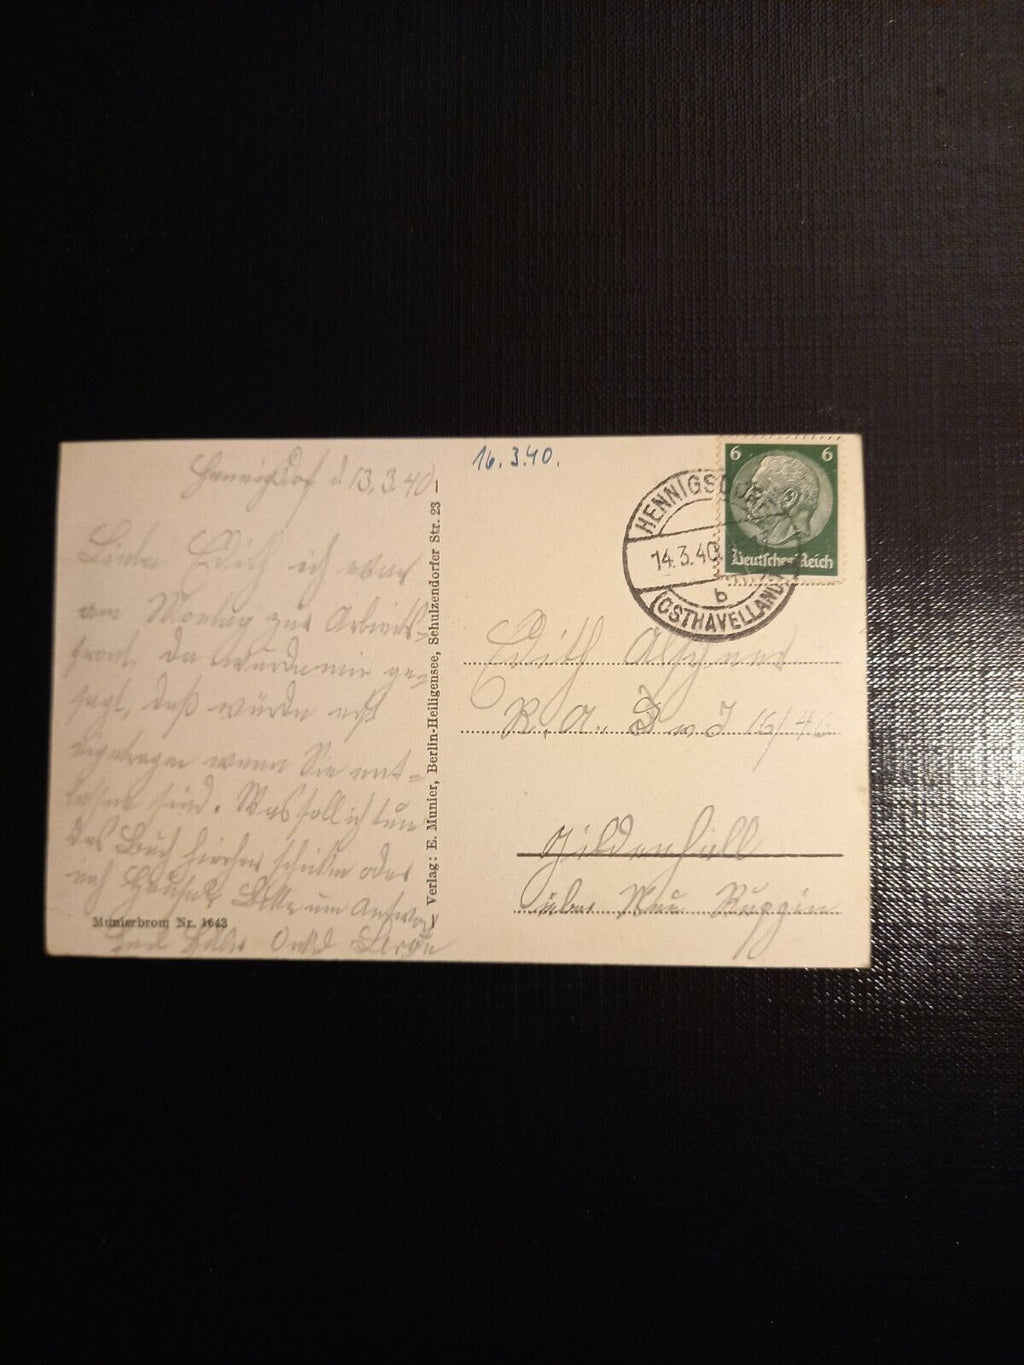 Hennigsdorf d. 13.3.40
Liebe Edith ich war
am Montag zur Arbeits-
front. Da wurde mir ge-
sagt, daß würde erst
eingetragen wenn Sie ent-
lassen sind. Was soll ich tun
das Buch hierher schicken oder
nach Hause. Bitte um Antwort
Onkel
Munierbrom Nr. 1643
Verlag: E. Munier, Berlin-Heiligensee, Schulzendorfer Str. 23
16.3.40.
HENNIGSDORF
14.3.40
b
(OSTHAVELLAND)
6 6
Deutsches Reich
Edith
R. A. D. w J 16/46
Gildenhall
über Neu Ruppin